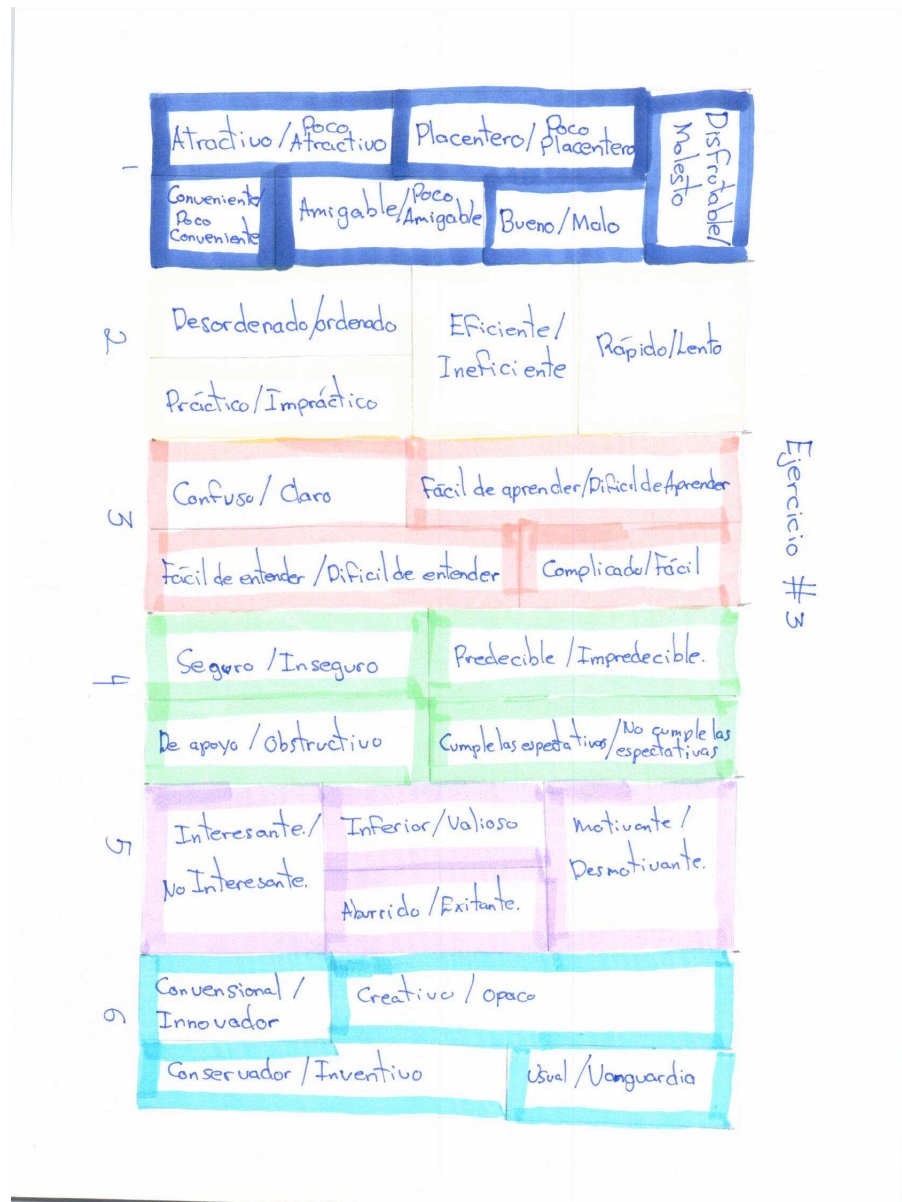 Ejercicio #3
1
Atractivo/Poco
Atractivo
Placentero/Poco
Placentero
Disfrutable/
Molesto
Conveniente/
Poco
Conveniente
Amigable/Poco
Amigable
Bueno/Malo
2
Desordenado/ordenado
Eficiente/
Ineficiente
Rápido/Lento
Práctico/Impráctico
3
Confuso/Claro
Fácil de aprender/Dificil de Aprender
Fácil de entender/Dificil de entender
Complicado/Fácil
4
Seguro/Inseguro
Predecible/Impredecible.
De apoyo/Obstructivo
Cumple las espectativas/No cumple las
espectativas
5
Interesante./
No Interesante.
Inferior/Valioso
Motivante/
Desmotivante.
Aburrido/Exitante.
6
Convensional/
Innovador
Creativo/Opaco
Conservador/Inventivo
Usual/Vanguardia